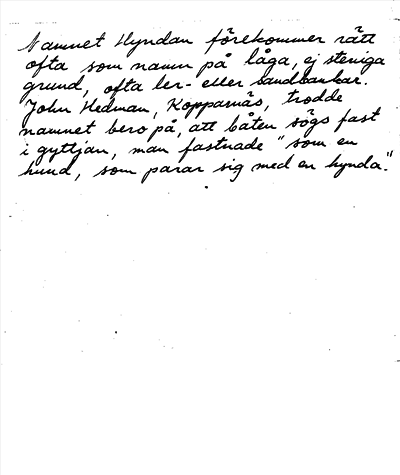 Namnet Hyndan förekommer rätt
ofta som namn på låga, ej steniga
grund, ofta ler- eller sandbankar.
John Hedman, Kopparnäs, trodde
namnet bero på, att båten sögs fast
i gyttjan, man fastnade "som en
hund, som parar sig med en hynda".